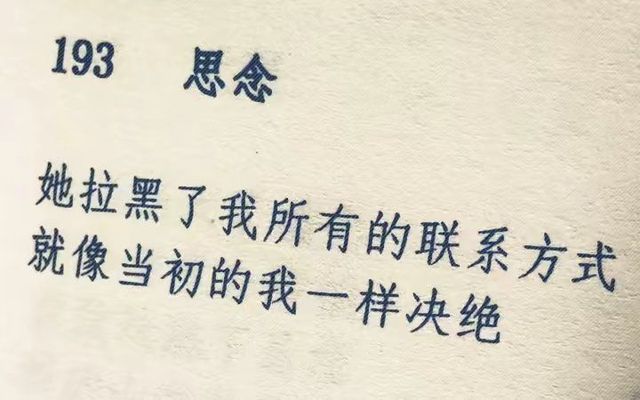 193 思念
她拉黑了我所有的联系方式
就像当初的我一样决绝